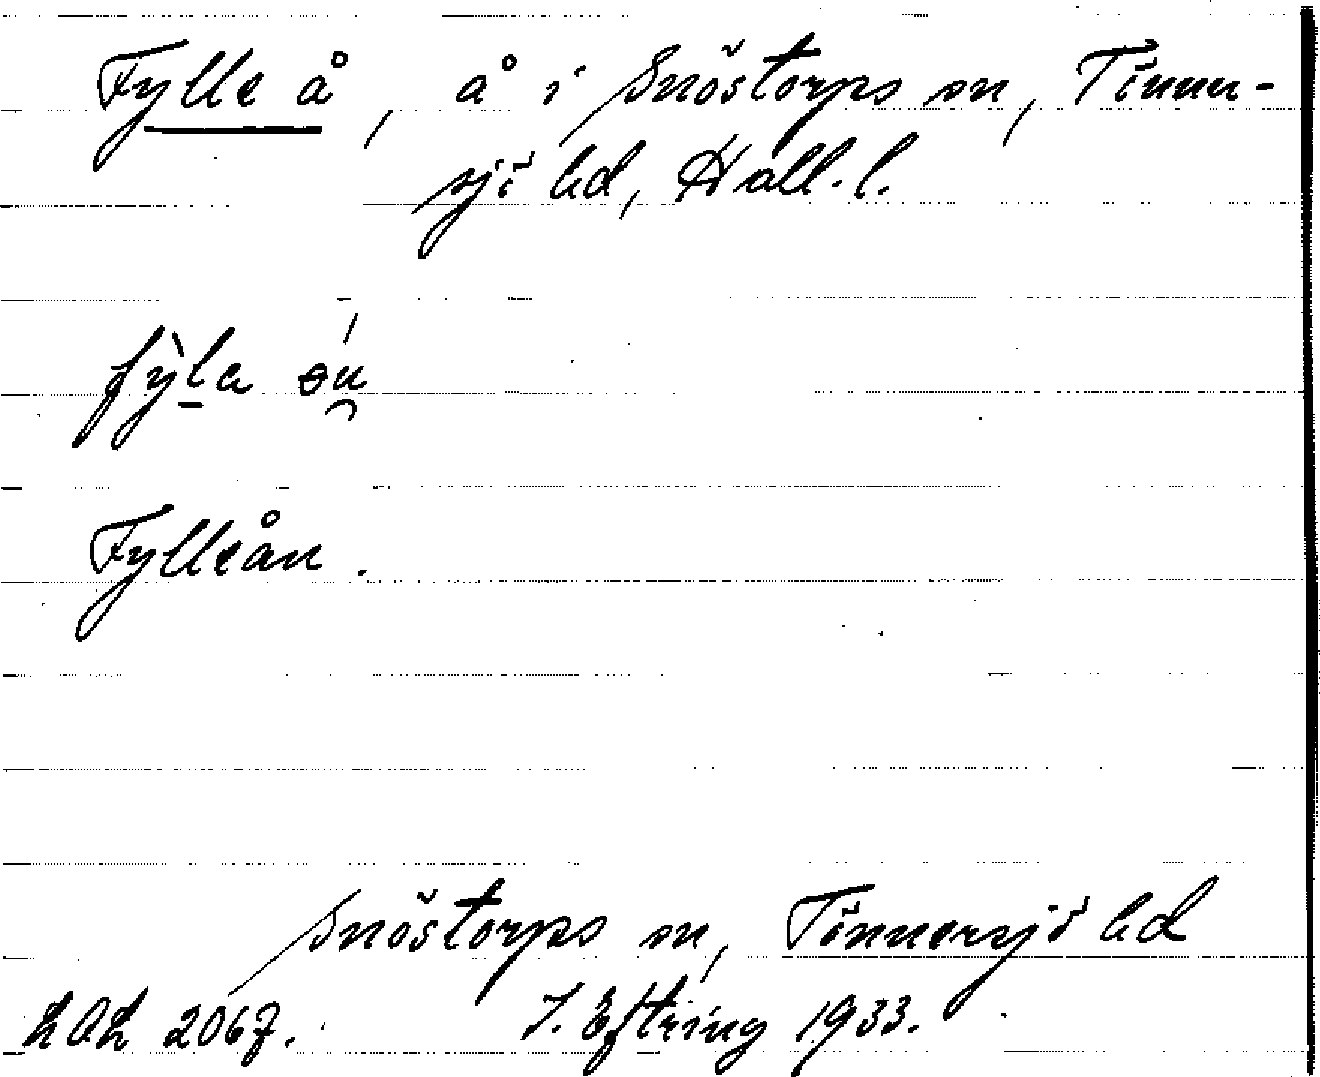 Fylle å, å i Snöstorps sn, Tönner-
sjö hd, Hall. l.
Fylleån.
Snöstorps sn, Tönnersjö hd
LAL 2067. J. Eftring 1933.